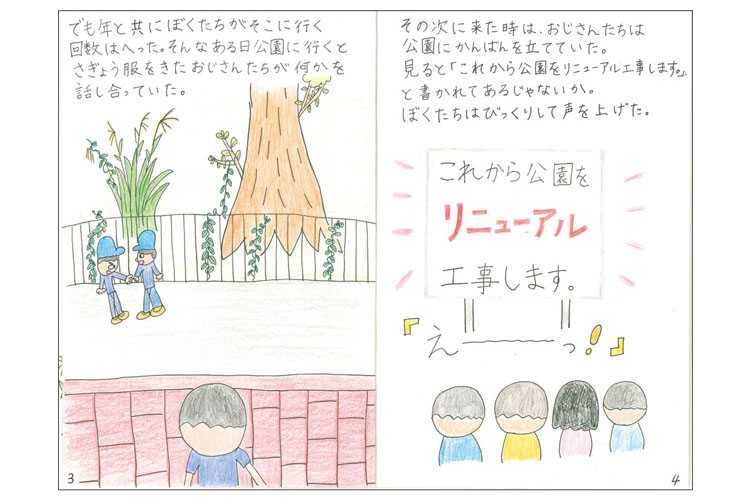 でも年と共にぼくたちがそこに行く
回数はへった。そんなある日公園に行くと
さぎょう服をきたおじさんたちが何かを
話し合っていた。
3
その次に来た時は、おじさんたちは
公園にかんばんを立てていた。
見ると「これから公園をリニューアル工事します。」
と書かれてあるじゃないか。
ぼくたちはびっくりして声を上げた。
これから公園を
リニューアル
工事します。
『えーっ!』
4